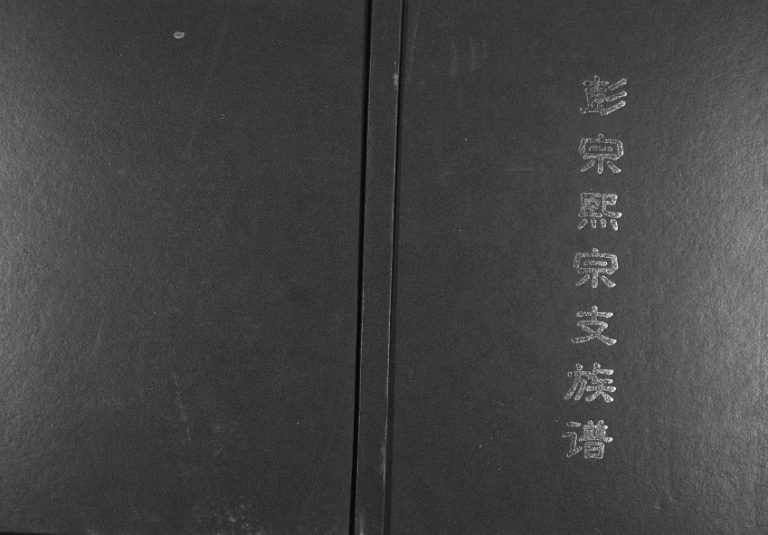 彭宗熙宗支族谱